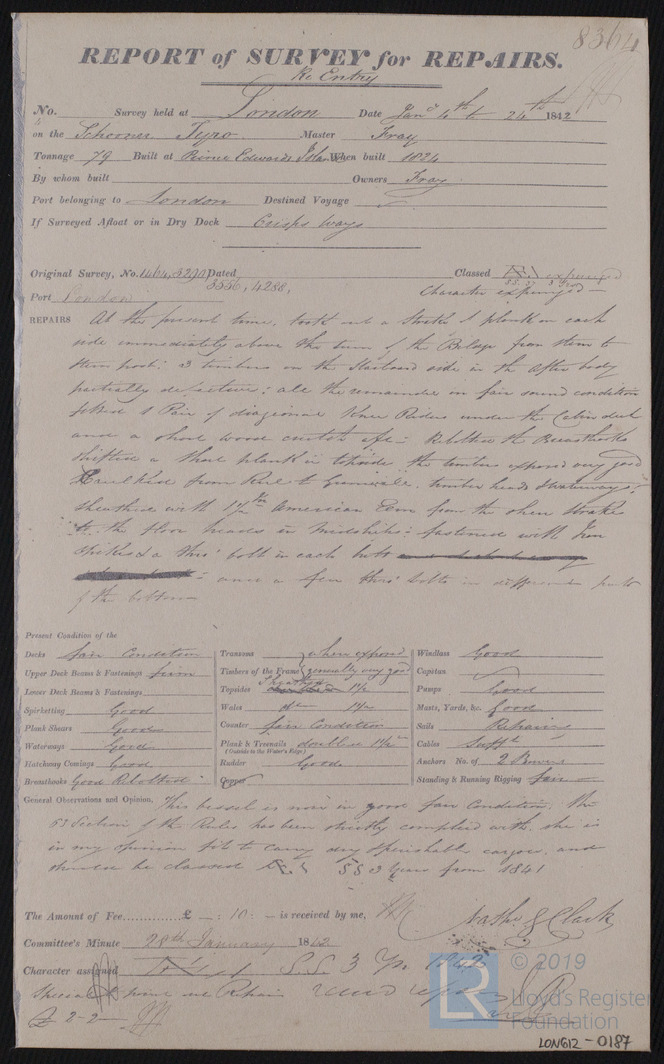 8364
REPORT of SURVEY for REPAIRS.
Re Entry
No. Survey held at London Date Jany 4th to 24th 1842
on the Schooner Tyro Master Fray
Tonnage 79 Built at Prince Edwards Island When built 1824
By whom built Owners Fray
Port belonging to London Destined Voyage
If Surveyed Afloat or in Dry Dock Crisps ways
Original Survey, No. 1464, 3290 Dated Classed expunged
3556, 4288,
Port London Character expunged
REPAIRS At the present time, took out a strake of plank on each
side immediately above the turn of the Bilge from stem to
stern post: 3 timbers on the Starboard side in the after body
partially defective; all the remainder in fair sound condition
1 Pair of diagonal Knee Riders under the Cabin deck
and a short wood crutch aft: Rebolted the Breasthooks
shifted a short plank in topside the timbers exposed very good
Caulked from Keel to Gunwale. timber heads & waterways:
sheathed with 1½ in American Elm from the sheer strake
to the floor heads in Midships: fastened with Iron
spikes & a thro' bolt in each butt
and a few thro' bolts in different parts
of the bottom
Present Condition of the
Decks fair Condition
Upper Deck Beams & Fastenings firm
Lower Deck Beams & Fastenings
Spirketting Good
Plank Shears Good
Waterways Good
Hatchway Comings Good
Breasthooks Good Rebolted
Transoms where exposed
Timbers of the Frame generally very good
Topsides Sheathed 1½
Wales do 1½
Counter fair Condition
Plank & Treenails doubled 1½
(Outside to the Water's Edge)
Rudder Good
Copper
Windlass Good
Capstan
Pumps Good
Masts, Yards, &c. Good
Sails Repairing
Cables Sufft
Anchors No. of 2 Bowers
Standing & Running Rigging fair
General Observations and Opinion, This vessel is now in good fair Condition. The
53 Section of the Rules has been strictly complied with. she is
in my opinion fit to carry dry & perishable cargoes, and
should be classed Æ 1 SS 3 Years from 1841
The Amount of Fee............ £ —: 10: — is received by me,
Nathl S Clark
Committee's Minute 28th January 1842
Character assigned Æ 1 S.S. 3 Yrs
Special
£ 2-2-
© 2019
LR
Lloyd's Register
Foundation
LON612-0187